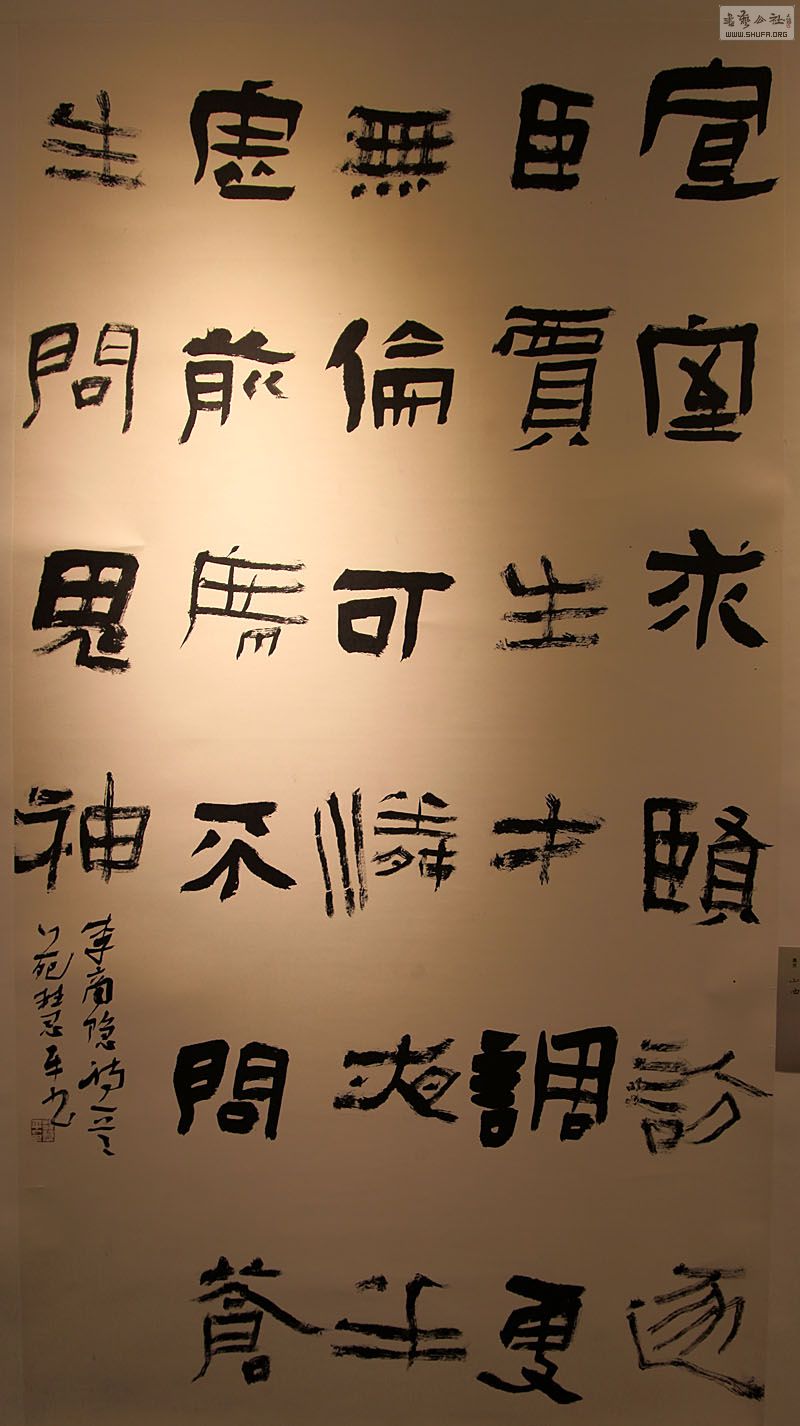 宣室求賢訪逐
臣賈生才調更
無倫可憐夜半
虛前席不問蒼
生問鬼神
李商隐詩一首
書藝公社
WWW.SHUFA.ORG